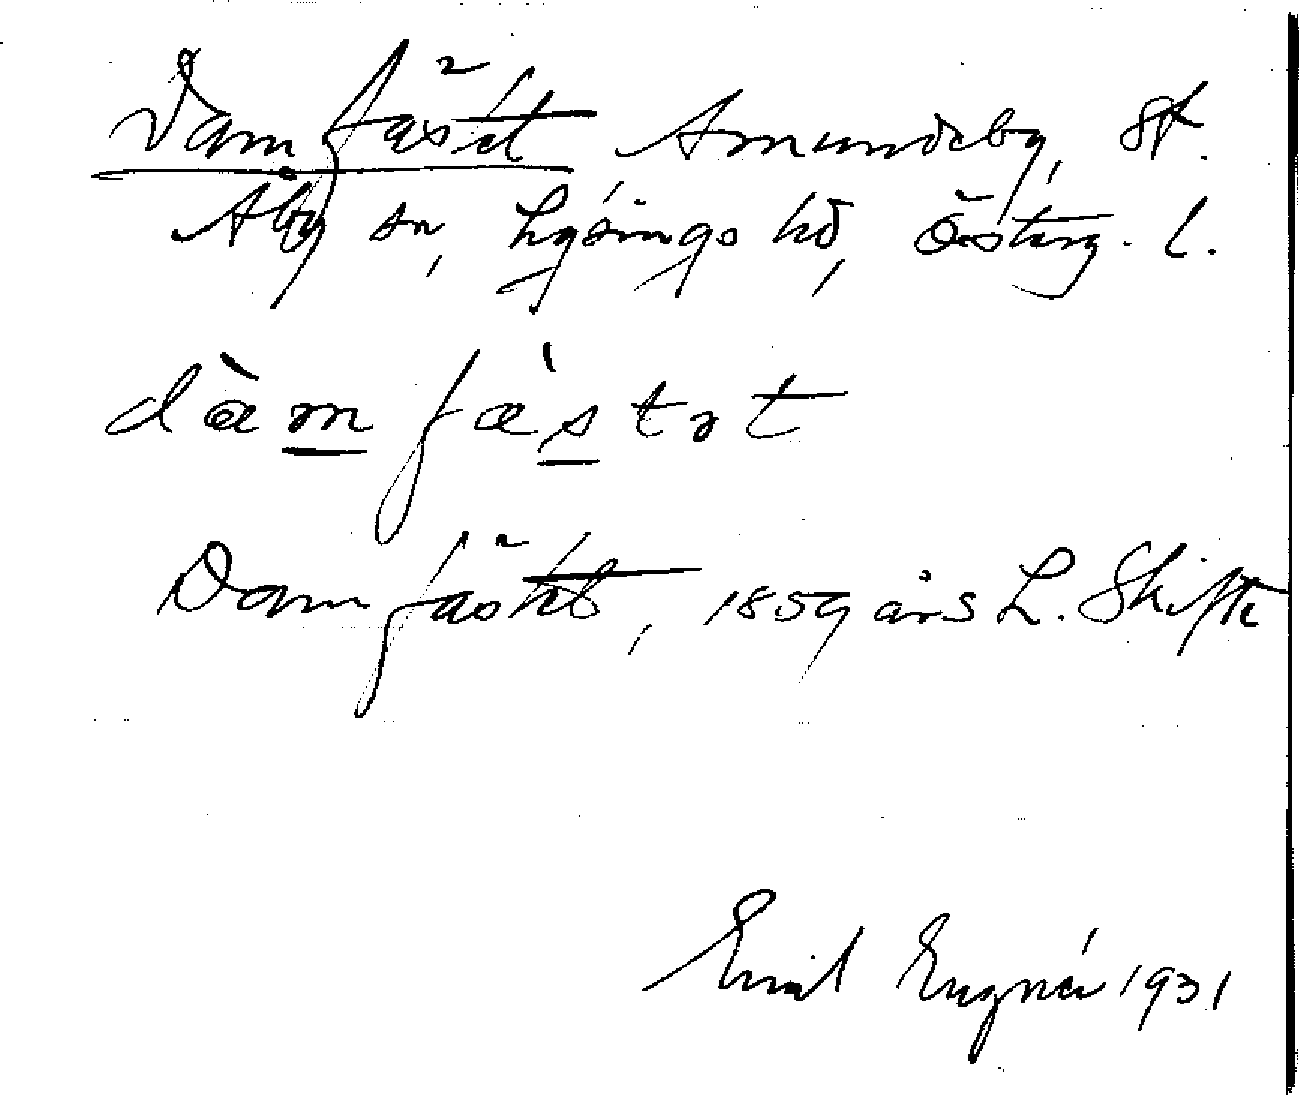 Damfästet Amundeby, St.
Åby sn, Lysings hd, Österg. l.
dàmfæ̀stət
Damfästet, 1859 års L. Skifte
Emil Engnér 1931